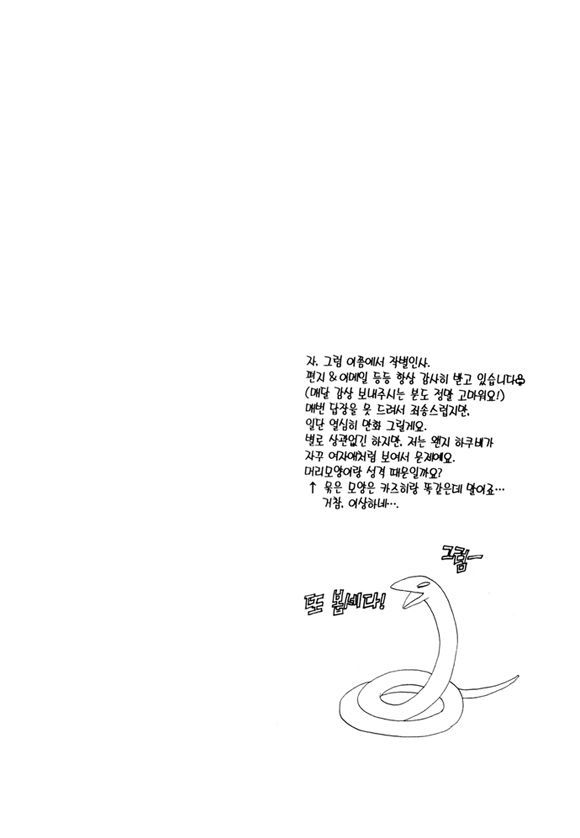 자, 그럼 이쯤에서 작별인사.
편지 & 이메일 등등 항상 감사히 받고 있습니다
(매달 감상 보내주시는 분도 정말 고마워요!)
매번 답장을 못 드려서 죄송스럽지만,
일단 열심히 만화 그릴게요.
별로 상관없긴 하지만, 저는 왠지 하쿠비가
자꾸 여자애처럼 보여서 문제에요.
머리모양이랑 성격 때문일까요?
↑ 묶은 모양은 카즈히랑 똑같은데 말이죠…
거참, 이상하네….
그럼ㅡ
또 봅시다!